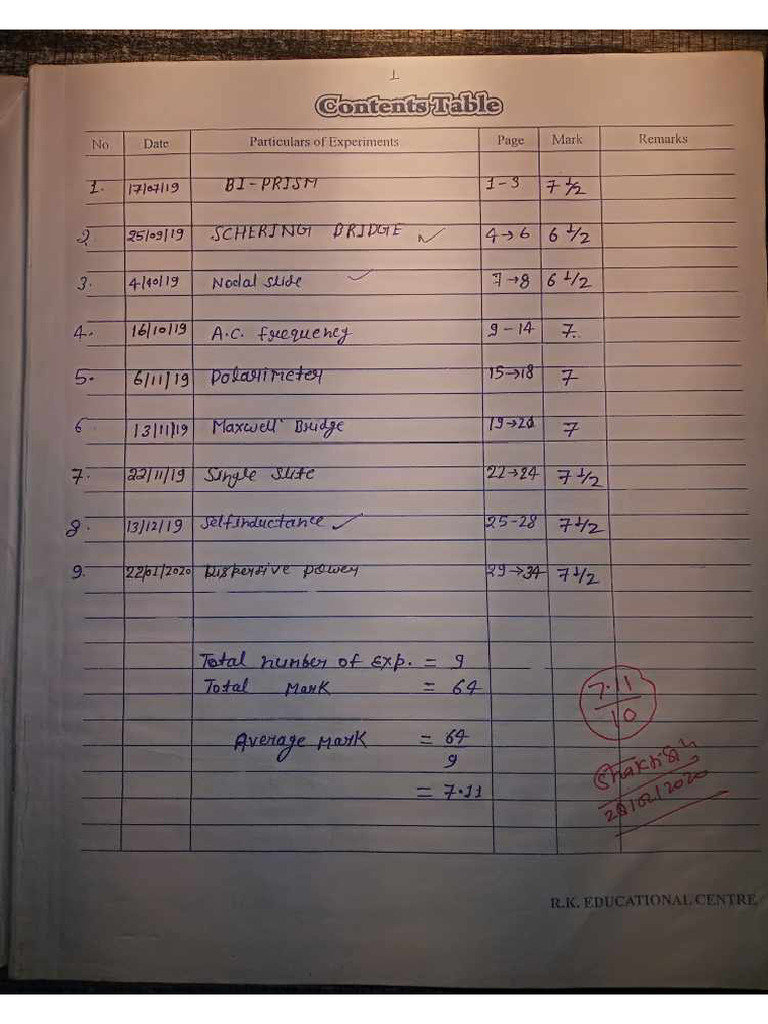 1
Contents Table
No Date Particulars of Experiments Page Mark Remarks
1. 17/07/19 BI-PRISM 1-3 7 1/2
2. 25/09/19 SCHERING BRIDGE 4→6 6 1/2
3. 4/10/19 Nodal slide 7→8 6 1/2
4. 16/10/19 A.C. frequency 9-14 7.
5. 6/11/19 Polarimeter 15→18 7
6 13/11/19 Maxwell Bridge 19→21 7
7. 22/11/19 Single slite 22→24 7 1/2
8. 13/12/19 Selfinductance 25-28 7 1/2
9. 22/01/2020 Dispersive power 29→34 7 1/2
Total number of exp. = 9
Total Mark = 64
7.11
10
Average Mark = 64
9
= 7.11
28/02/2020
R.K. EDUCATIONAL CENTRE